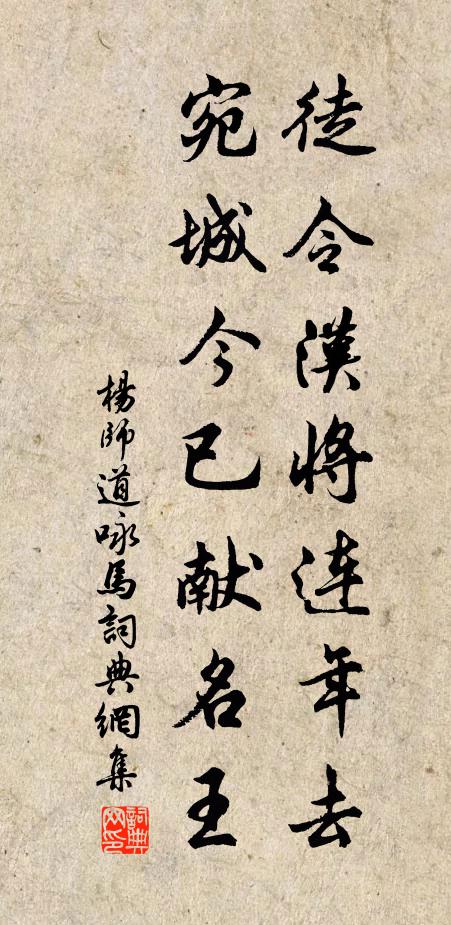 徒令漢將連年去
宛城今已献名王
楊師道咏馬詞典網集
詞典网印